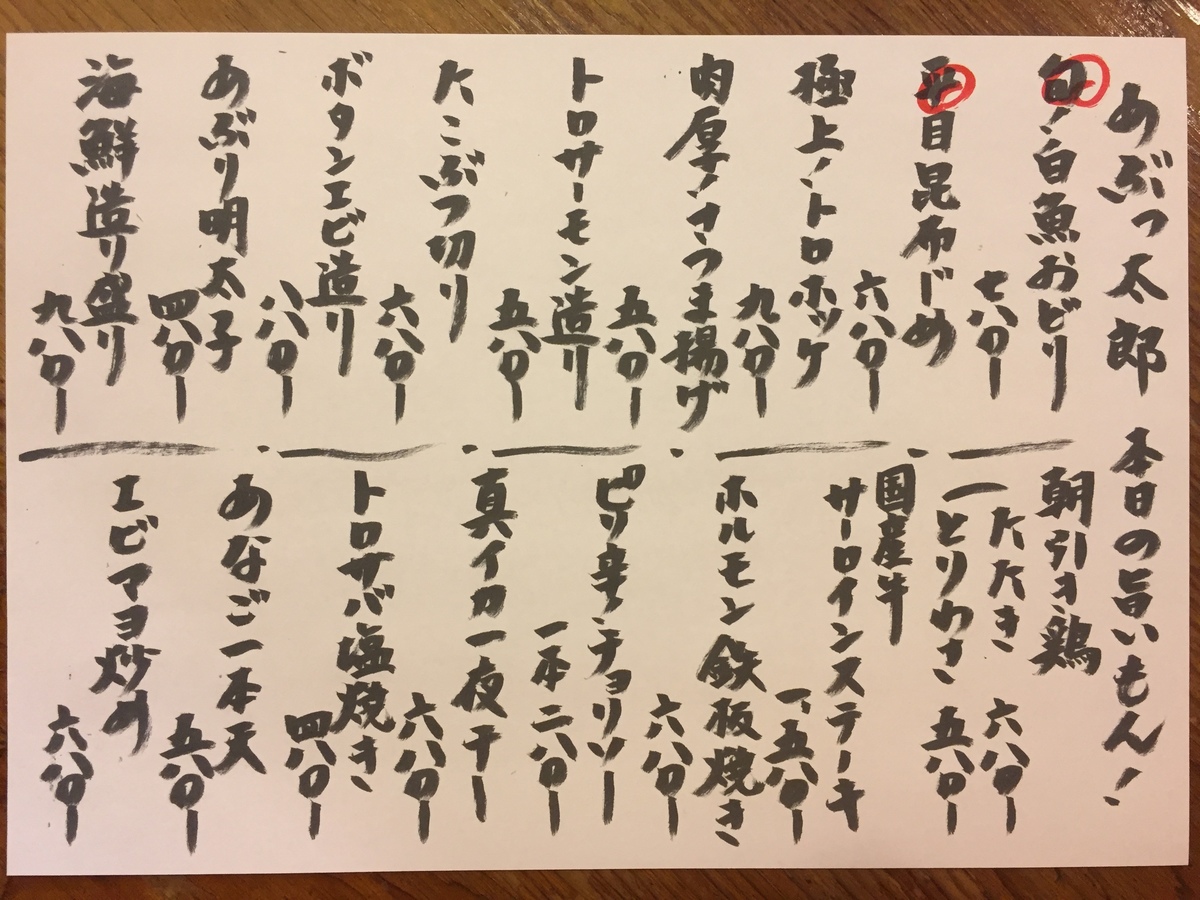 あぶっ太郎 本日の旨いもん！
旬ノ白魚おどり
七八〇ー
平目昆布じめ
六八〇ー
極上ノトロホッケ
九八〇ー
肉厚ノさつま揚げ
五八〇ー
トロサーモン造り
五八〇ー
たこぶつ切り
六八〇ー
ボタンエビ造り
八八〇ー
あぶり明太子
四八〇ー
海鮮造り盛り
九八〇ー
朝引き鶏
たたき 六八〇ー
とりわさ 五八〇ー
国産牛
サーロインステーキ
一、五八〇ー
ホルモン鉄板焼き
六八〇ー
ピリ辛ノチョリソー
一本二八〇ー
真イカ一夜干し
六八〇ー
トロサバ塩焼き
四八〇ー
あなご一本天
五八〇ー
エビマヨ炒め
六八〇ー